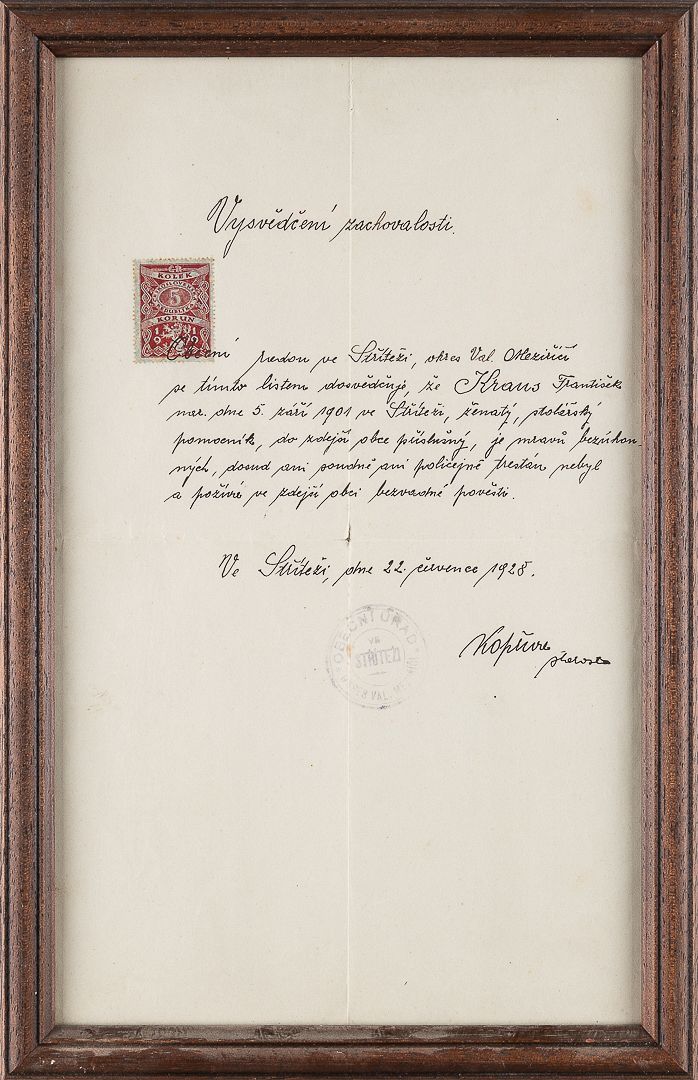 Vysvědčení zachovalosti.
KOLEK
5
KORUN
1919
Obecní radou ve Stříteži, okres Val. Meziříčí
se tímto listem dosvědčuje, že Kraus František
nar. dne 5. září 1901 ve Stříteži, ženatý, stolářský
pomocník, do zdejší obce příslušný, je mravů bezúhon-
ných, dosud ani soudně ani policejně trestán nebyl
a požívá ve zdejší obci bezvadné pověsti.
Ve Stříteži, dne 22. července 1928.
OBECNÍ ÚŘAD
VE
STŘÍTEŽI
OKRES VAL. MEZIŘÍČÍ
starosta